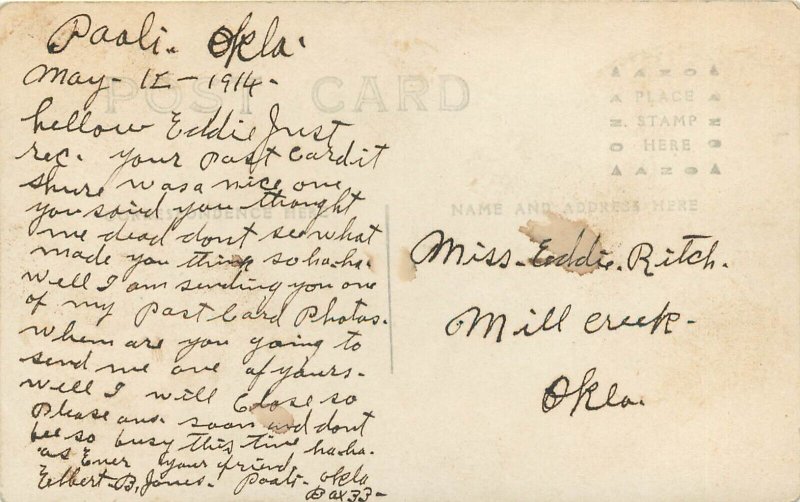 Paoli. Okla.
May - 12 - 1914 -
POST CARD
hellow Eddie Just
rec. your Post Card it
shure was a nice one
you said you thought
me dead dont see what
made you think so ha-ha.
Well I am sending you one
of my Post Card Photos.
When are you going to
send me one of yours -
Well I will Close so
Please ans. soon and dont
bee so busy this time ha-ha.
as Ever your friend
Elbert B. Jones. Paoli - Okla
Box 33 -
CORRESPONDENCE HERE
AZO
PLACE
STAMP
HERE
AZO
NAME AND ADDRESS HERE
Miss. Eddie. Ritch.
Mill Creek -
Okla.